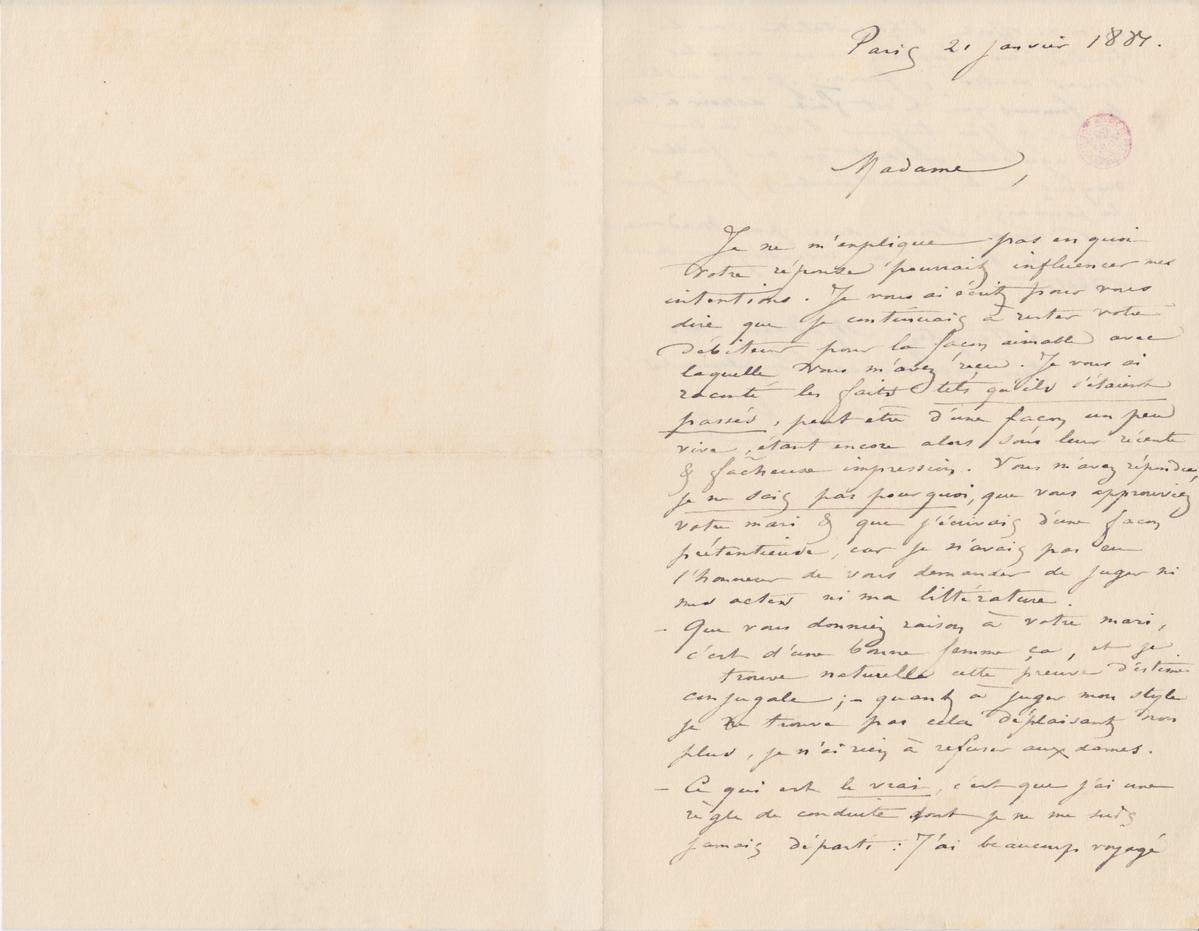 Paris 21 janvier 1887.
Madame,
Je ne m'explique pas en quoi
votre réponse pourrait influencer mes
intentions. Je vous ai écrit pour vous
dire que je continuais à rester votre
débiteur pour la façon aimable avec
laquelle vous m'avez reçu. Je vous ai
raconté les faits tels qu'ils s'étaient
passés, peut être d'une façon un peu
vive, étant encore alors sous leur récente
& fâcheuse impression. Vous m'avez répondu,
je ne sais pas pourquoi, que vous approuviez
votre mari & que j'écrivais d'une façon
prétentieuse, car je n'avais pas eu
l'honneur de vous demander de juger ni
mes actes ni ma littérature.
- Que vous donniez raison à votre mari,
c'est d'une bonne femme ça, et je
trouve naturelle cette preuve d'estime
conjugale ; - quant à juger mon style
je ne trouve pas cela déplaisant non
plus, je n'ai rien à refuser aux dames.
- Ce qui est le vrai, c'est que j'ai une
règle de conduite dont je ne me suis
jamais départi : J'ai beaucoup voyagé